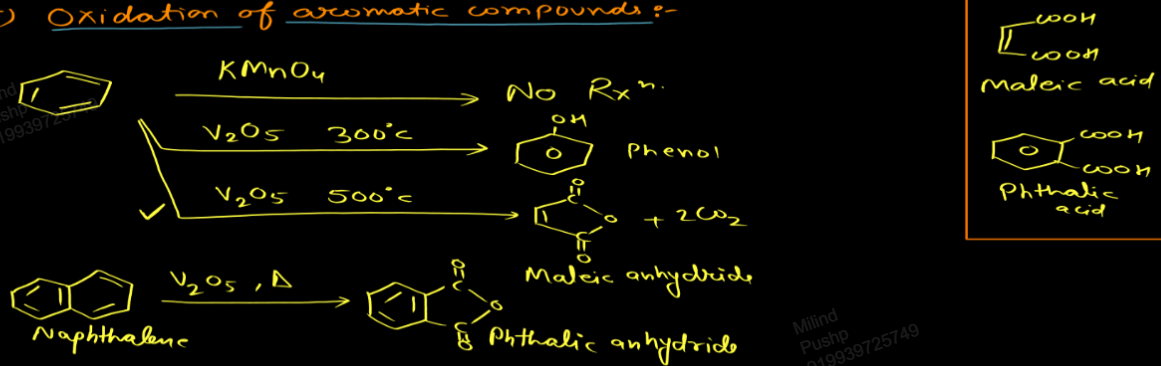 Oxidation of aromatic compounds :-
KMnO4
No Rxn.
V2O5 300°C
OH
Phenol
V2O5 500°C
O
C
O
C
O
+ 2CO2
Maleic anhydride
V2O5 , Δ
O
C
O
C
O
Naphthalene
Phthalic anhydride
COOH
COOH
Maleic acid
COOH
COOH
Phthalic
acid
Milind
Pushp
919939725749